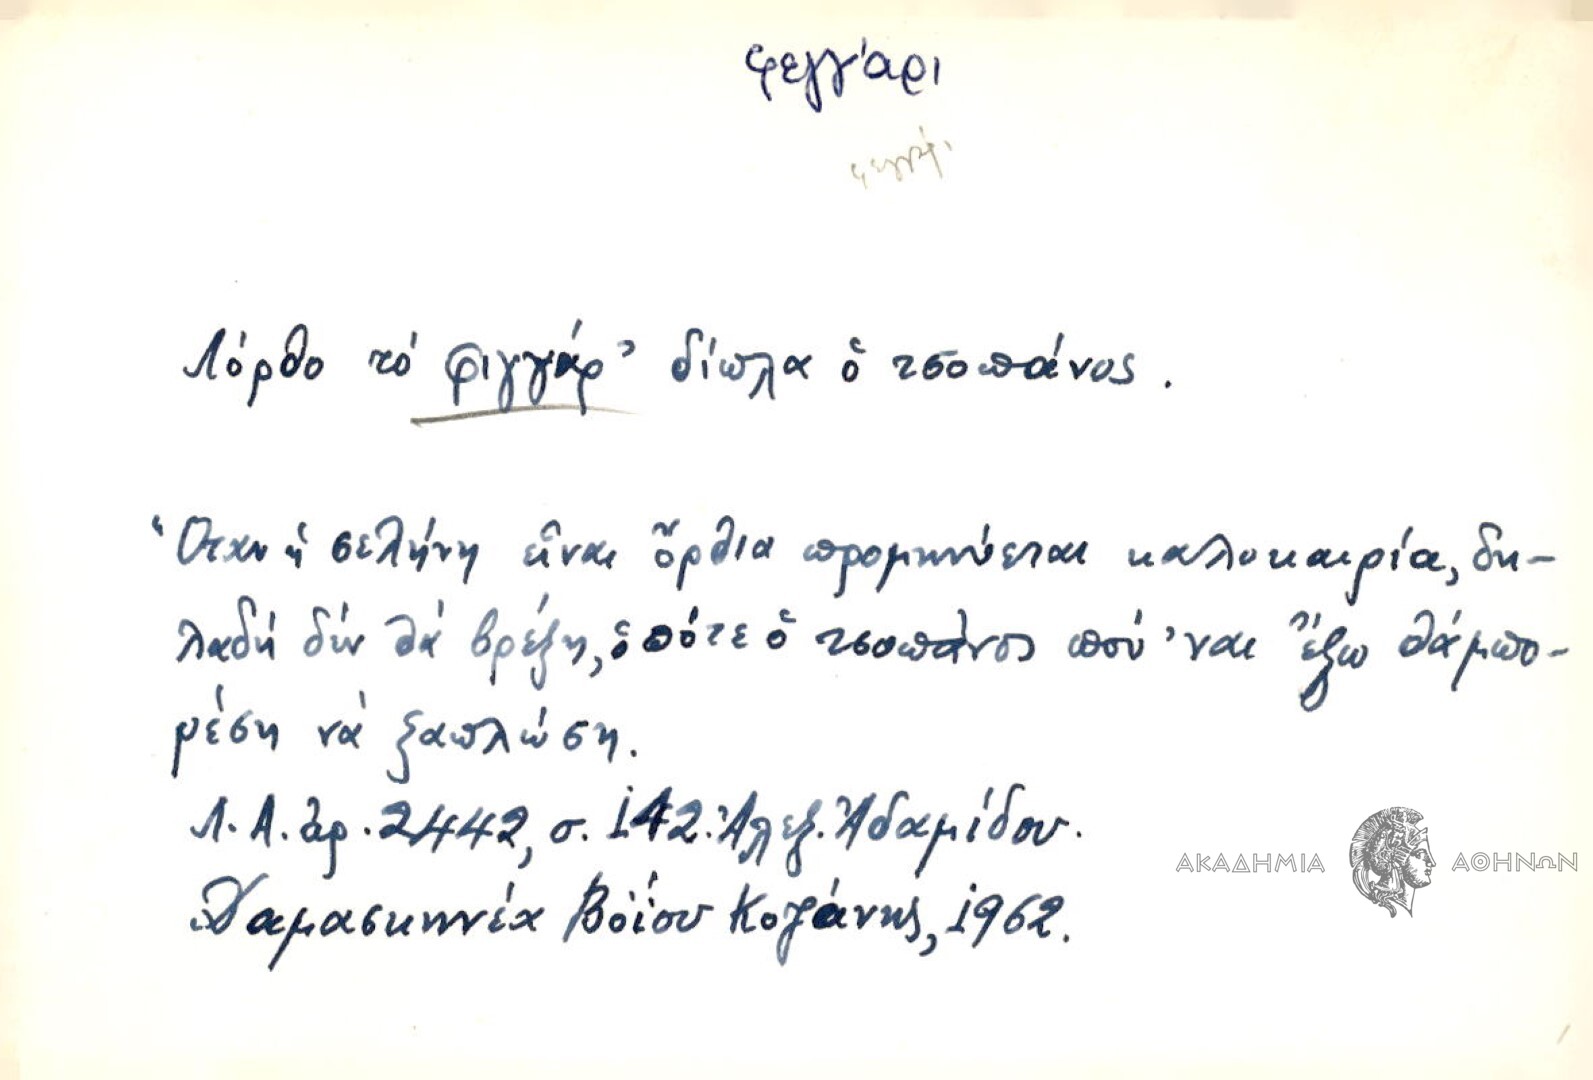 φεγγάρι
φεγγάρι
Λόρθο τό φιγγάρ' δίπλα ὁ τσοπάνος.
Ὅταν ἡ σελήνη εἶναι ὄρθια προμηνύεται καλοκαιρία, δη-
λαδή δέν θά βρέξη, ὁπότε ὁ τσοπάνος πού 'ναι ἔξω θά μπο-
ρέση νά ξαπλώση.
Λ.Α. ἀρ. 2442, σ. 142. Ἀλεξ. Ἀδαμίδου.
Δαμασκηνέα Βοΐου Κοζάνης, 1962.
ΑΚΑΔΗΜΙΑ ΑΘΗΝΩΝ